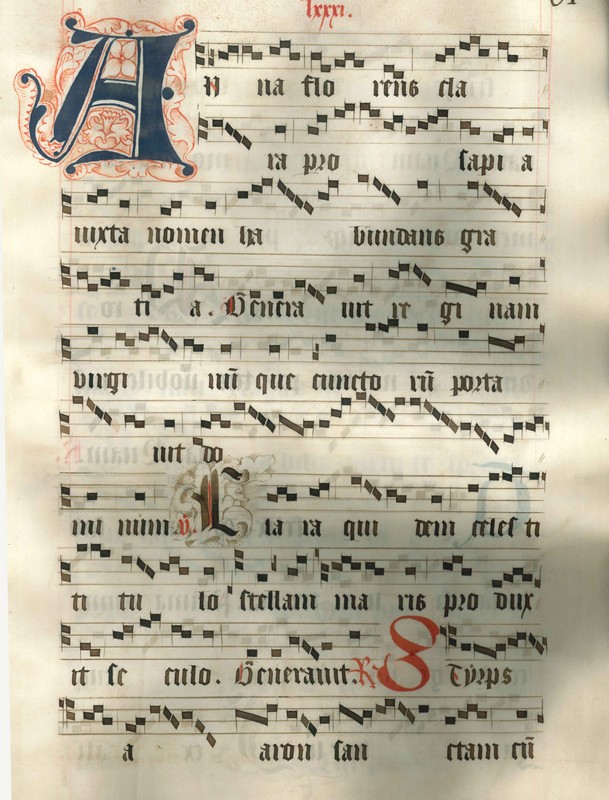 lxxxi.
AN na flo rens cla
ra pro sapi a
iuxta nomen ha bundans gra
ti a. Genera uit re gi nam
virgi nū que cuncto rū porta
uit do
mi num ℣. Cla ra qui dem celes ti
ti tu lo stellam ma ris pro dux
it se culo. Generauit.
STyrps
a aron san ctam cū